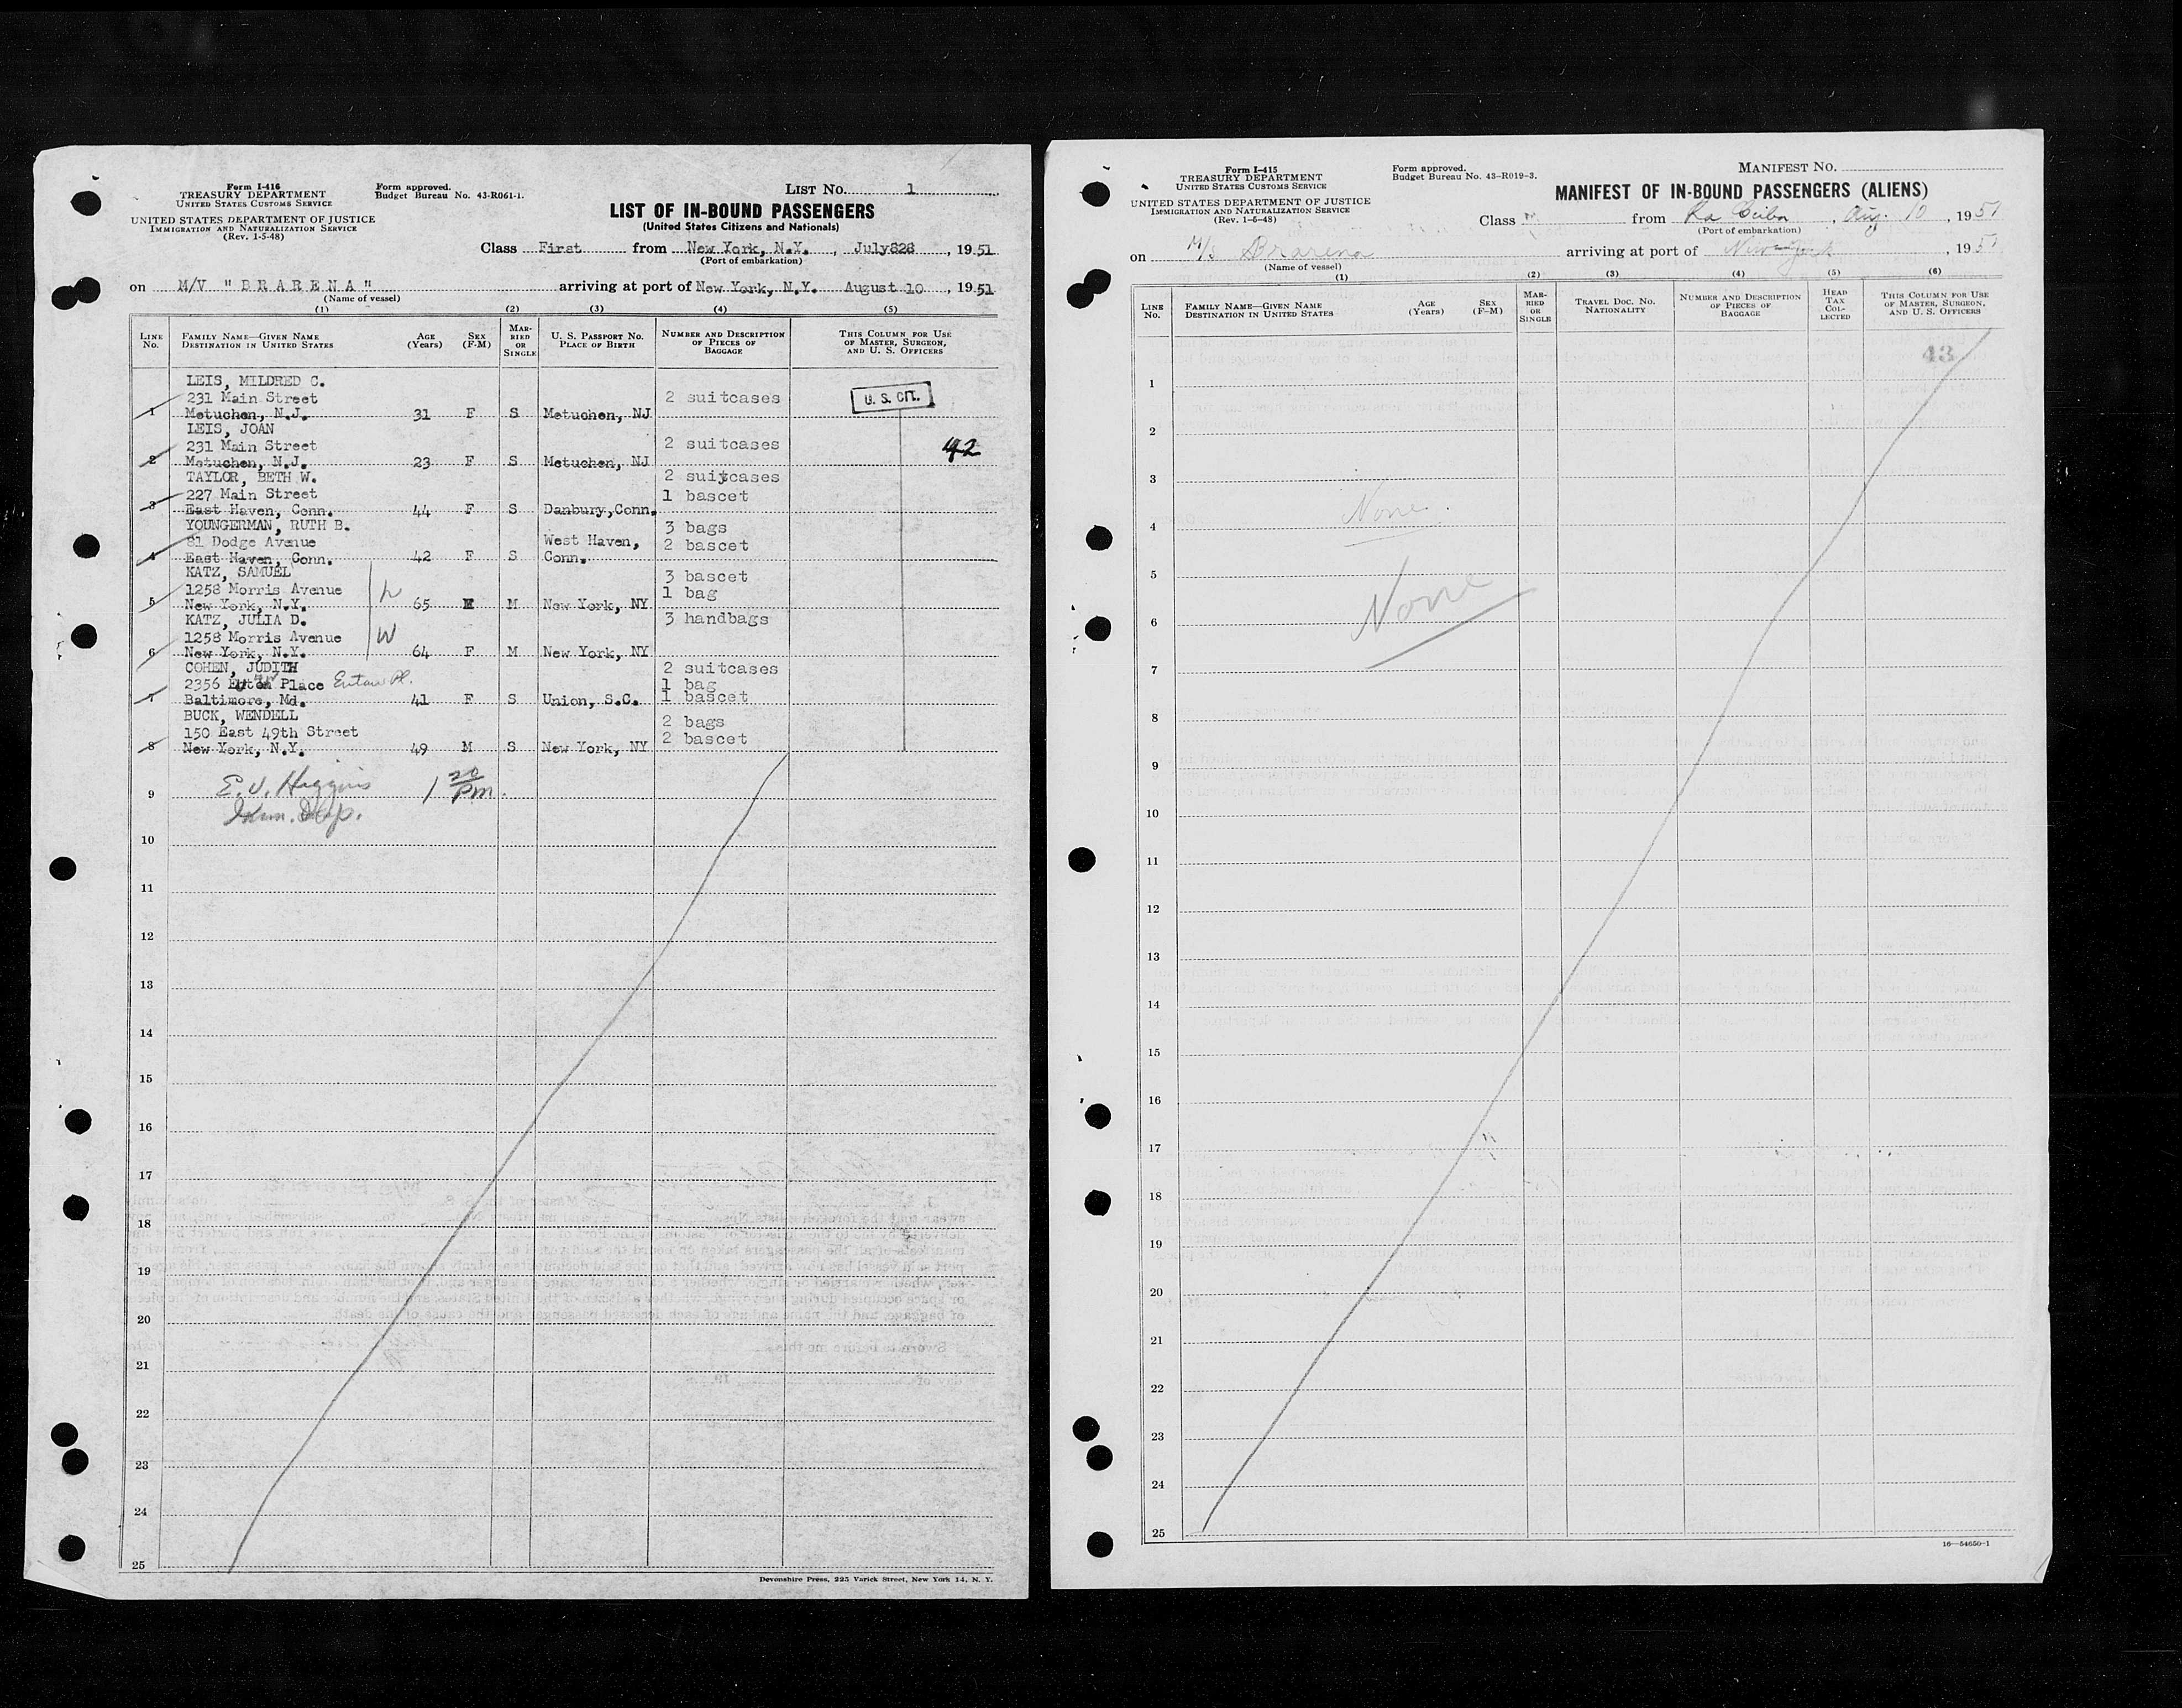 Form I-416
TREASURY DEPARTMENT
UNITED STATES CUSTOMS SERVICE
UNITED STATES DEPARTMENT OF JUSTICE
IMMIGRATION AND NATURALIZATION SERVICE
(Rev. 1-5-48)
Form approved.
Budget Bureau No. 43-R061-1.
LIST NO. 1
LIST OF IN-BOUND PASSENGERS
(United States Citizens and Nationals)
Class First from New York, N.Y., July 28, 1951
(Port of embarkation)
on M/V "BRARENA" arriving at port of New York, N.Y. August 10, 1951
(Name of vessel)
(1) (2) (3) (4) (5)
LINE NO. FAMILY NAME—GIVEN NAME DESTINATION IN UNITED STATES AGE (Years) SEX (F-M) MARRIED OR SINGLE U. S. PASSPORT NO. PLACE OF BIRTH NUMBER AND DESCRIPTION OF PIECES OF BAGGAGE THIS COLUMN FOR USE OF MASTER, SURGEON, AND U. S. OFFICERS
LEIS, MILDRED C.
231 Main Street 2 suitcases U. S. CIT.
1 Metuchen, N.J. 31 F S Metuchen, NJ
LEIS, JOAN
231 Main Street 2 suitcases 42
2 Metuchen, N.J. 23 F S Metuchen, NJ
TAYLOR, BETH W. 2 suitcases
227 Main Street 1 bascet
3 East Haven, Conn. 44 F S Danbury, Conn.
YOUNGERMAN, RUTH B. 3 bags
81 Dodge Avenue West Haven, 2 bascet
4 East Haven, Conn. 42 F S Conn.
KATZ, SAMUEL 3 bascet
1258 Morris Avenue h 1 bag
5 New York, N.Y. 65 M M New York, NY
KATZ, JULIA D. 3 handbags
1258 Morris Avenue W
6 New York, N.Y. 64 F M New York, NY
COHEN, JUDITH 2 suitcases
2356 Place Eutaw Pl. 1 bag
7 Baltimore, Md. 41 F S Union, S.C. 1 bascet
BUCK, WENDELL 2 bags
150 East 49th Street 2 bascet
8 New York, N.Y. 49 M S New York, NY
9 E. J. Higgins 1 20 pm.
Imm. Insp.
10
11
12
13
14
15
16
17
18
19
20
21
22
23
24
25
Devonshire Press, 225 Varick Street, New York 14, N. Y.
Form I-415
TREASURY DEPARTMENT
UNITED STATES CUSTOMS SERVICE
UNITED STATES DEPARTMENT OF JUSTICE
IMMIGRATION AND NATURALIZATION SERVICE
(Rev. 1-5-48)
Form approved.
Budget Bureau No. 43-R019-3.
MANIFEST NO.
MANIFEST OF IN-BOUND PASSENGERS (ALIENS)
Class from La Ceiba, Aug. 10, 1951
(Port of embarkation)
on M/S Brarena arriving at port of New York, 195
(Name of vessel)
(1) (2) (3) (4) (5) (6)
LINE NO. FAMILY NAME—GIVEN NAME DESTINATION IN UNITED STATES AGE (Years) SEX (F-M) MARRIED OR SINGLE TRAVEL DOC. NO. NATIONALITY NUMBER AND DESCRIPTION OF PIECES OF BAGGAGE HEAD TAX COLLECTED THIS COLUMN FOR USE OF MASTER, SURGEON, AND U. S. OFFICERS
43
1
2
3
None
4
5
None
6
7
8
9
10
11
12
13
14
15
16
17
18
19
20
21
22
23
24
25
16—54650-1